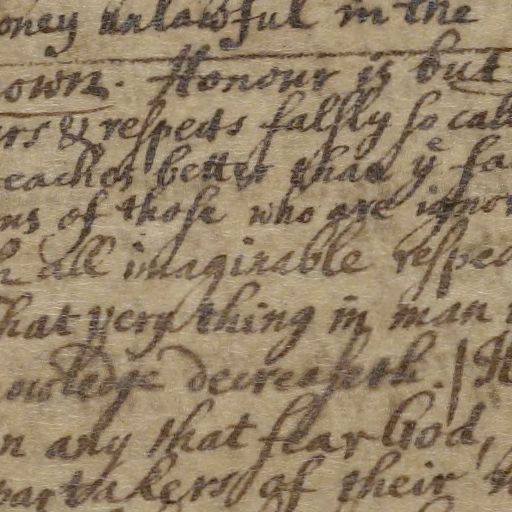 oney unlawful in the
own. Honour is but
rs & respects falsly so call
eaches better than ye fa
ns of those who are ignor
h all imaginable respec
hat very thing in man
owledge decreaseth. H
n any that fear God,
partakers of their